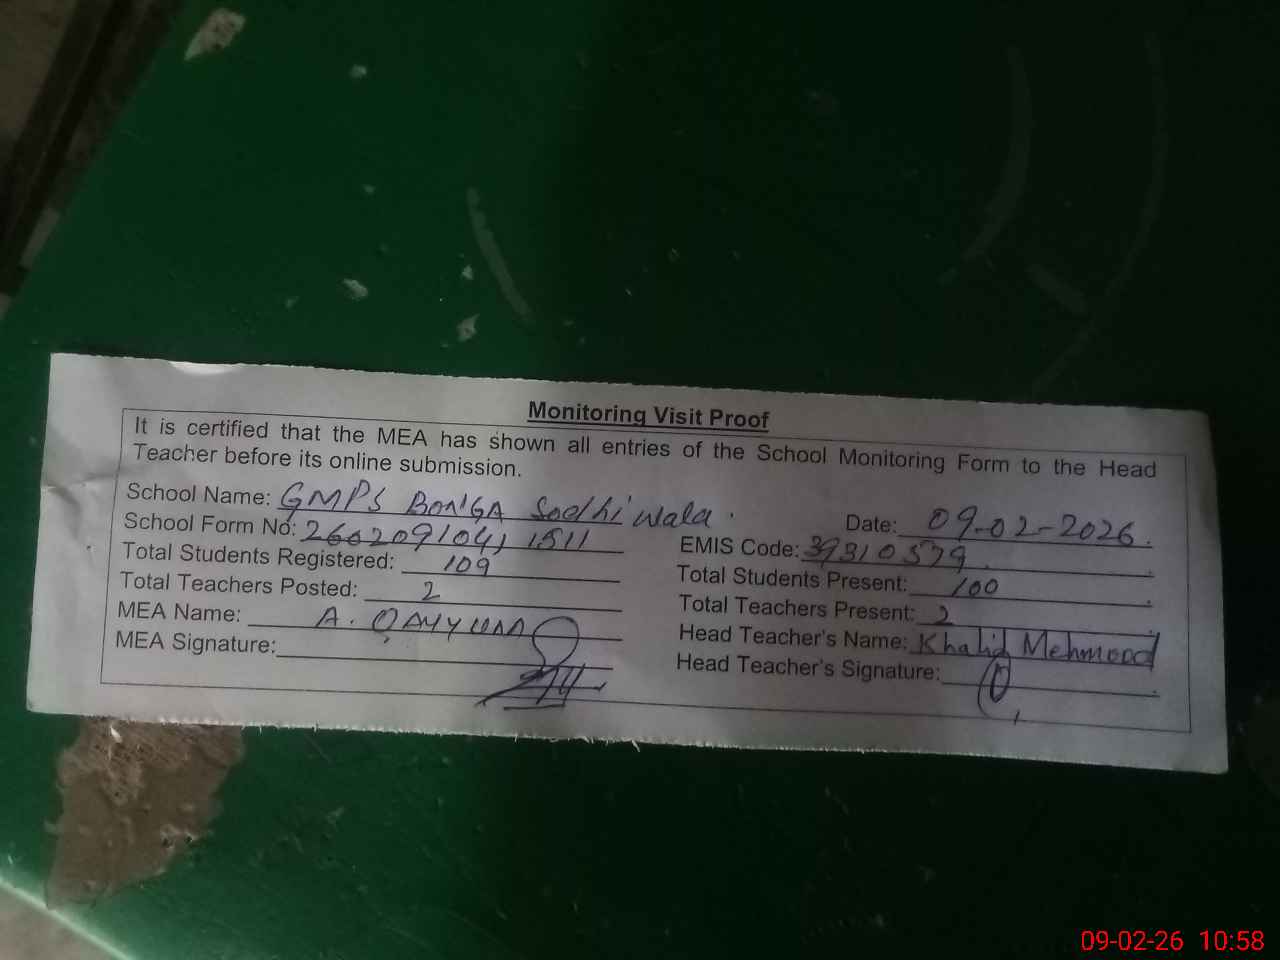 Monitoring Visit Proof
It is certified that the MEA has shown all entries of the School Monitoring Form to the Head
Teacher before its online submission.
School Name: GMPS BONGA Sodhi wala. Date: 09-02-2026.
School Form No: 26020910411511 EMIS Code: 39310579
Total Students Registered: 109 Total Students Present: 100
Total Teachers Posted: 2 Total Teachers Present: 2
MEA Name: A. QAYYUM Head Teacher's Name: Khalid Mehmood
MEA Signature: Head Teacher's Signature:
09-02-26 10:58